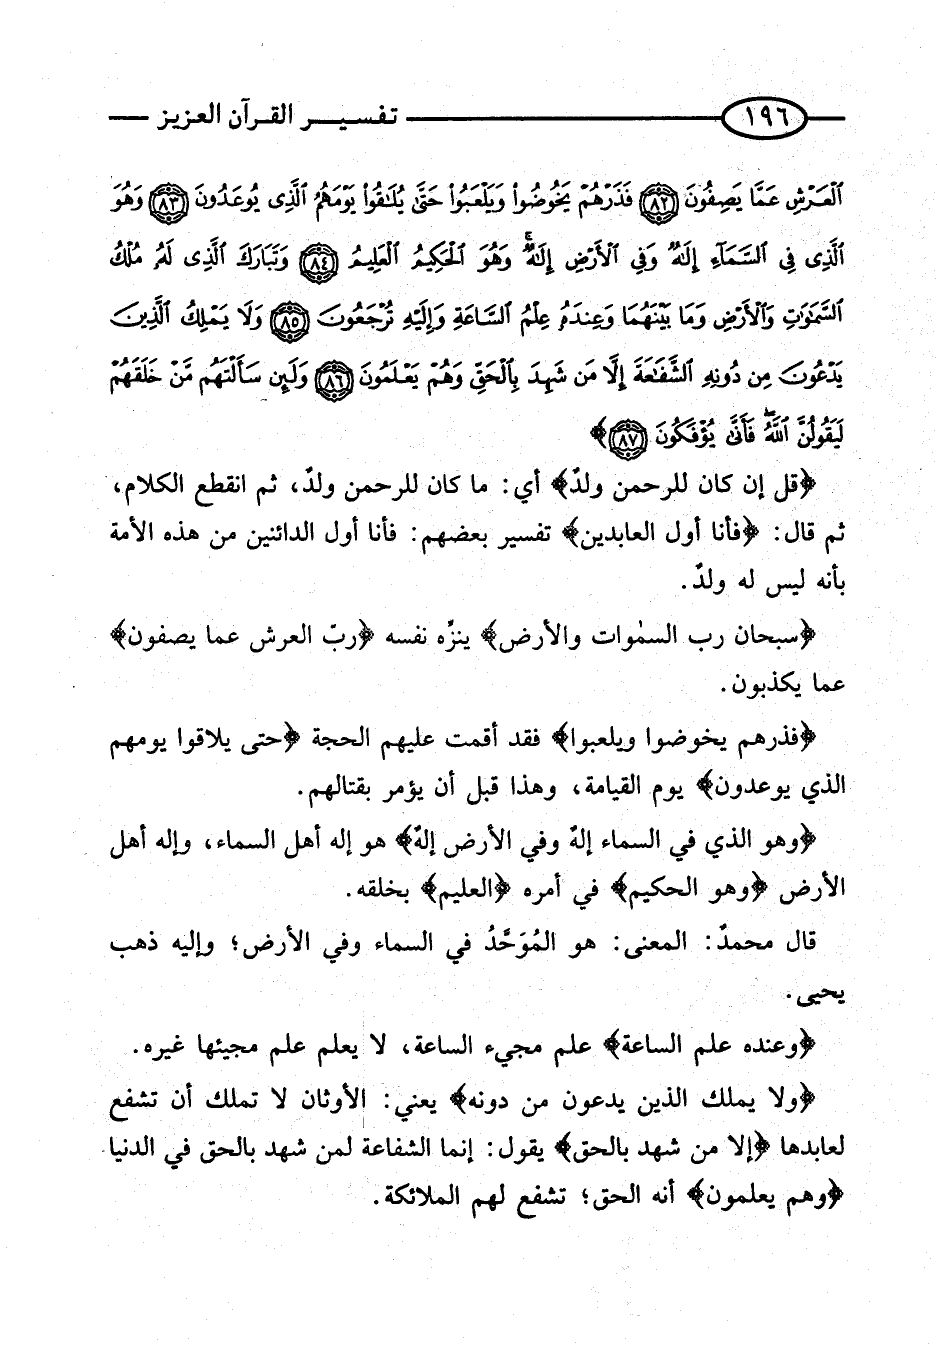 ١٩٦ تفسير القرآن العزيز
ٱلۡعَرۡشِ عَمَّا يَصِفُونَ ٨٢ فَذَرۡهُمۡ يَخُوضُواْ وَيَلۡعَبُواْ حَتَّىٰ يُلَٰقُواْ يَوۡمَهُمُ ٱلَّذِي يُوعَدُونَ ٨٣ وَهُوَ
ٱلَّذِي فِي ٱلسَّمَآءِ إِلَٰهٞ وَفِي ٱلۡأَرۡضِ إِلَٰهٞۚ وَهُوَ ٱلۡحَكِيمُ ٱلۡعَلِيمُ ٨٤ وَتَبَارَكَ ٱلَّذِي لَهُۥ مُلۡكُ
ٱلسَّمَٰوَٰتِ وَٱلۡأَرۡضِ وَمَا بَيۡنَهُمَا وَعِندَهُۥ عِلۡمُ ٱلسَّاعَةِ وَإِلَيۡهِ تُرۡجَعُونَ ٨٥ وَلَا يَمۡلِكُ ٱلَّذِينَ
يَدۡعُونَ مِن دُونِهِ ٱلشَّفَٰعَةَ إِلَّا مَن شَهِدَ بِٱلۡحَقِّ وَهُمۡ يَعۡلَمُونَ ٨٦ وَلَئِن سَأَلۡتَهُم مَّنۡ خَلَقَهُمۡ
لَيَقُولُنَّ ٱللَّهُۖ فَأَنَّىٰ يُؤۡفَكُونَ ٨٧﴾
﴿قل إن كان للرحمن ولدٌ﴾ أي: ما كان للرحمن ولدٌ، ثم انقطع الكلام،
ثم قال: ﴿فأنا أول العابدين﴾ تفسير بعضهم: فأنا أول الدائنين من هذه الأمة
بأنه ليس له ولدٌ.
﴿سبحان رب السمٰوات والأرض﴾ ينزِّه نفسه ﴿ربّ العرش عما يصفون﴾
عما يكذبون.
﴿فذرهم يخوضوا ويلعبوا﴾ فقد أقمت عليهم الحجة ﴿حتى يلاقوا يومهم
الذي يوعدون﴾ يوم القيامة، وهذا قبل أن يؤمر بقتالهم.
﴿وهو الذي في السماء إلهٌ وفي الأرض إلهٌ﴾ هو إله أهل السماء، وإله أهل
الأرض ﴿وهو الحكيم﴾ في أمره ﴿العليم﴾ بخلقه.
قال محمدٌ: المعنى: هو المُوَحَّدُ في السماء وفي الأرض؛ وإليه ذهب
يحيى.
﴿وعنده علم الساعة﴾ علم مجيء الساعة، لا يعلم علم مجيئها غيره.
﴿ولا يملك الذين يدعون من دونه﴾ يعني: الأوثان لا تملك أن تشفع
لعابدها ﴿إلا من شهد بالحق﴾ يقول: إنما الشفاعة لمن شهد بالحق في الدنيا
﴿وهم يعلمون﴾ أنه الحق؛ تشفع لهم الملائكة.